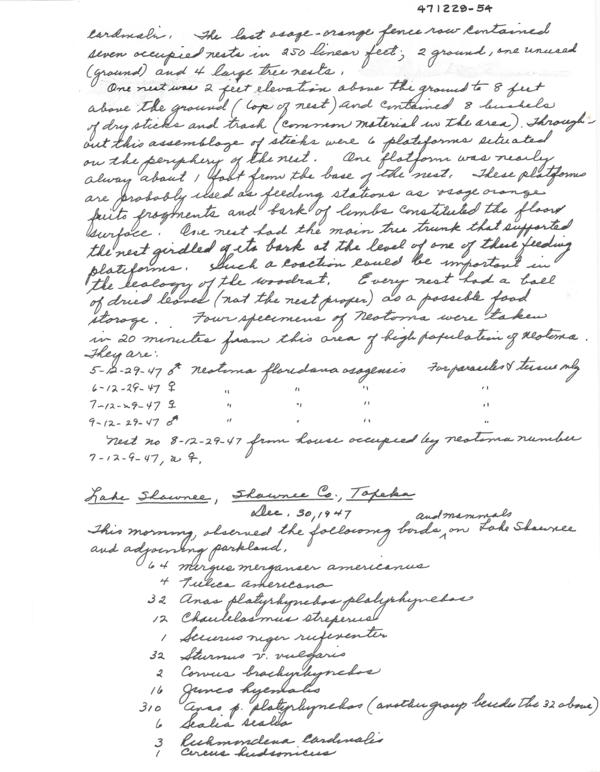 471229-54
cardinalis. The last osage-orange fence row contained
seven occupied nests in 250 linear feet; 2 ground, one unused
(ground) and 4 large tree nests.
One nest was 2 feet elevation above the ground to 8 feet
above the ground (top of nest) and contained 8 bushels
of dry sticks and trash (common material in the area). Through-
out this assemblage of sticks were 6 plateforms setuated
on the periphery of the nest. One flatform was nearly
alway about 1 foot from the base of the nest. These platforms
are probably used as feeding stations as osage orange
fruits fragments and bark of limbs constituted the floor
surface. One nest had the main tree trunk that supported
the nest girdled of its bark at the level of one of these feeding
plateforms. Such a coaction could be important in
the ecology of the woodrat. Every nest had a ball
of dried leaves (not the nest proper) as a possible food
storage. Four specimens of Neotoma were taken
in 20 minutes from this area of high population of neotoma.
They are:
5-12-29-47 ♂ Neotoma floridana osagensis For parasites & tissue only
6-12-29-47 ♀ " " " "
7-12-29-47 ♀ " " " "
9-12-29-47 ♂ " " " "
Nest no 8-12-29-47 from house occupied by neotoma number
7-12-9-47, a ♀.
Lake Shawnee, Shawnee Co., Topeka
Dec. 30, 1947
This morning, observed the following birds ^ and mammals on Lake Shawnee
and adjoining parkland.
64 Mergus merganser americanus
4 Fulica americana
32 Anas platyrhynchos platyrhynchos
12 Chaulelasmus streperus
1 Sciurus niger rufiventer
32 Sturnus v. vulgaris
2 Corvus brachyrhynchos
16 Junco hyemalis
310 Anas p. platyrhynchos (another group besides the 32 above)
6 Sialia sialis
3 Richmondena cardinalis
1 Circus hudsonicus